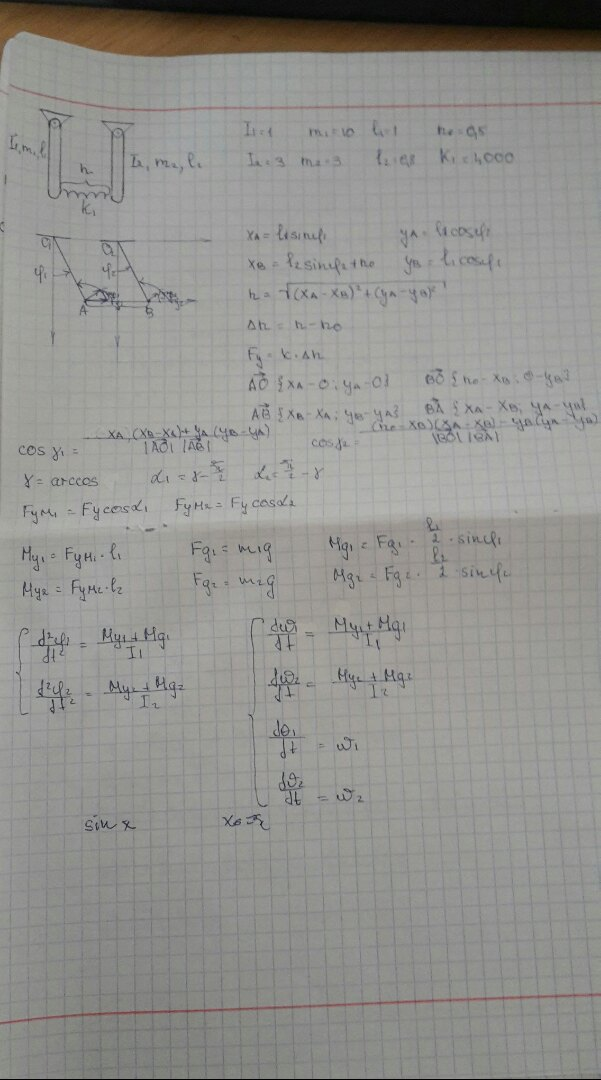 I₁=1 m₁=10 l₁=1 n₀=0,5
I₂=3 m₂=3 l₂=0,8 K₁=1,000
I₁, m₁, l₁
I₂, m₂, l₂
n
K₁
O₁ O₂
φ₁ φ₂
A B
x_A = l₁sinφ₁ y_A = l₁cosφ₁
x_B = l₂sinφ₂+n₀ y_B = l₁cosφ₁
n = √(x_A-x_B)²+(y_A-y_B)²
Δn = n-n₀
F_y = k·Δn
AO {x_A-0; y_A-0} BO {n₀-x_B; 0-y_B}
AB {x_B-x_A; y_B-y_A} BA {x_A-x_B; y_A-y_B}
cos γ₁ = x_A·(x_B-x_A)+y_A(y_B-y_A) / |AO| |AB| cosγ₂= (n₀-x_B)(x_A-x_B)-y_B(y_A-y_B) / |BO| |BA|
γ = arccos α₁ = γ-π/2 α₂ = π/2-γ
F_yм₁ = F_y cosα₁ F_yм₂ = F_y cosα₂
M_y₁ = F_yм₁·l₁ F_g₁ = m₁g M_g₁ = F_g₁ · l₁/2 · sinφ₁
M_y₂ = F_yм₂·l₂ F_g₂ = m₂g M_g₂ = F_g₂ · l₂/2 · sinφ₂
d²φ₁/dt² = M_y₁+M_g₁/I₁ dω₁/dt = M_y₁+M_g₁/I₁
d²φ₂/dt² = M_y₂+M_g₂/I₂ dω₂/dt = M_y₂+M_g₂/I₂
dθ₁/dt = ω₁
dθ₂/dt = ω₂
sin x x₀=π